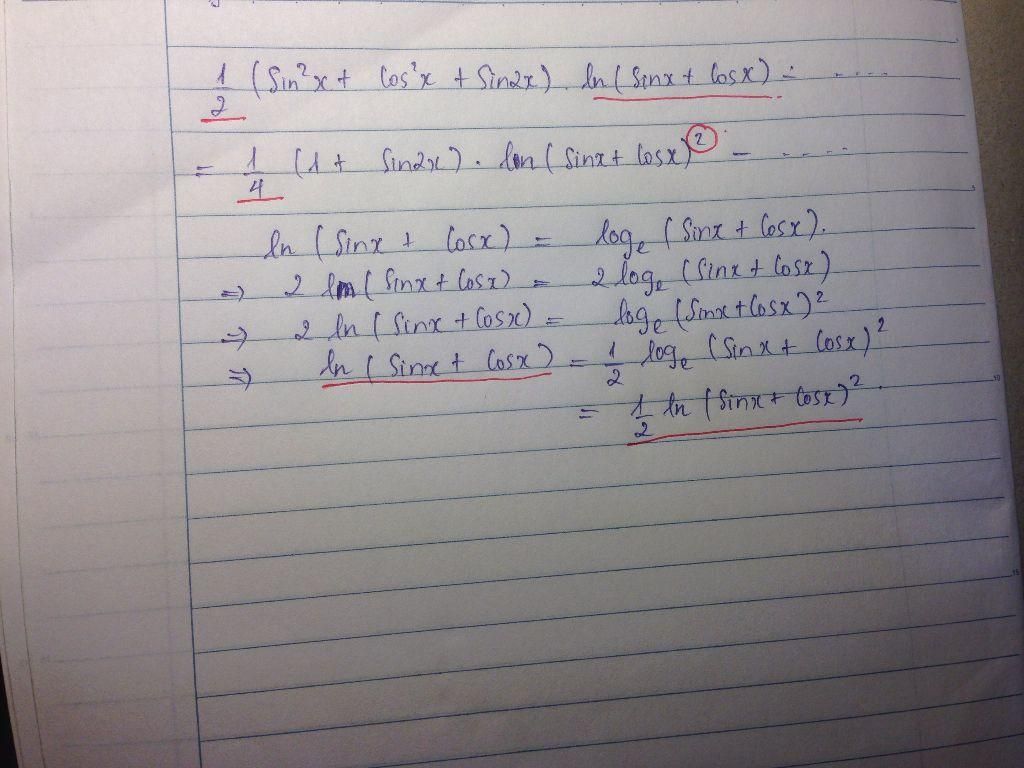 1/2 (Sin²x + Cos²x + Sin2x). ln(Sinx + Cosx) - ....
= 1/4 (1 + Sin2x). ln(Sinx + Cosx)² - ....
ln (Sinx + Cosx) = logₑ (Sinx + Cosx).
⇒ 2 ln(Sinx + Cosx) = 2 logₑ (Sinx + Cosx)
⇒ 2 ln(Sinx + Cosx) = logₑ (Sinx + Cosx)²
⇒ ln (Sinx + Cosx) = 1/2 logₑ (Sinx + Cosx)²
= 1/2 ln (Sinx + Cosx)².